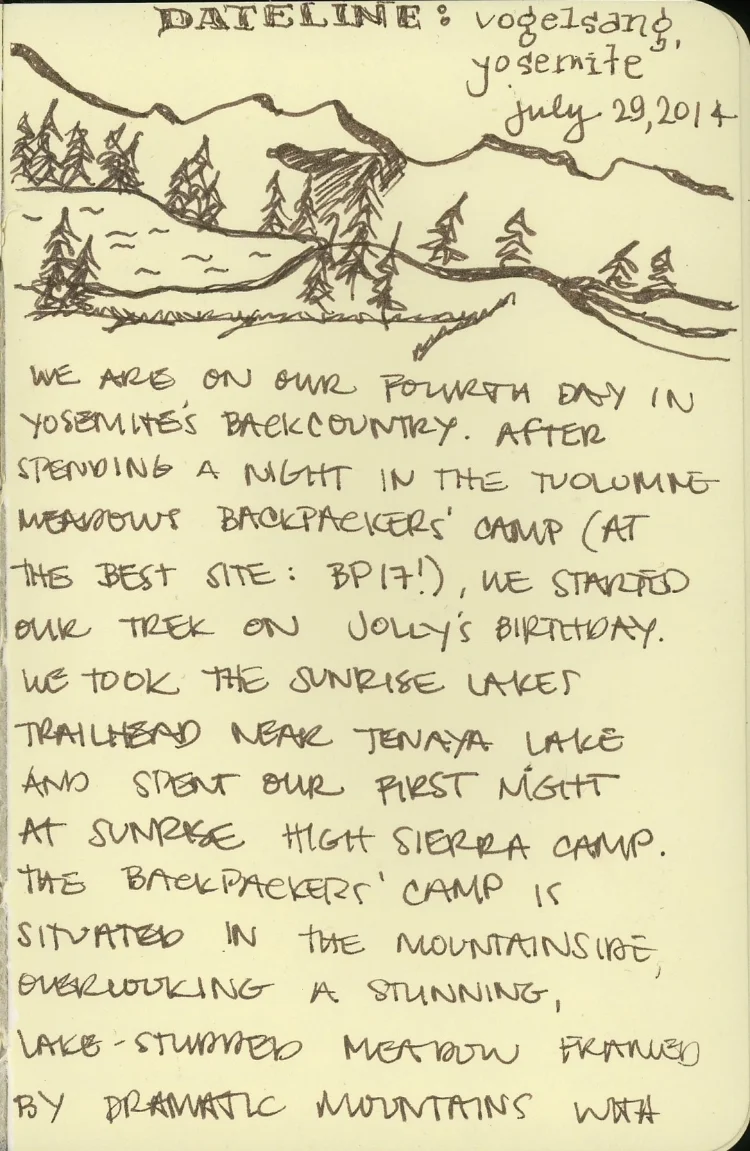 DATELINE: vogelsang,
yosemite
july 29, 2014
WE ARE ON OUR FOURTH DAY IN
YOSEMITE'S BACKCOUNTRY. AFTER
SPENDING A NIGHT IN THE TUOLUMNE
MEADOWS BACKPACKERS' CAMP (AT
THE BEST SITE: BP17!), WE STARTED
OUR TREK ON JOLLY'S BIRTHDAY.
WE TOOK THE SUNRISE LAKES
TRAILHEAD NEAR TENAYA LAKE
AND SPENT OUR FIRST NIGHT
AT SUNRISE HIGH SIERRA CAMP.
THE BACKPACKERS' CAMP IS
SITUATED IN THE MOUNTAINSIDE,
OVERLOOKING A STUNNING,
LAKE-STUDDED MEADOW FRAMED
BY DRAMATIC MOUNTAINS WITH